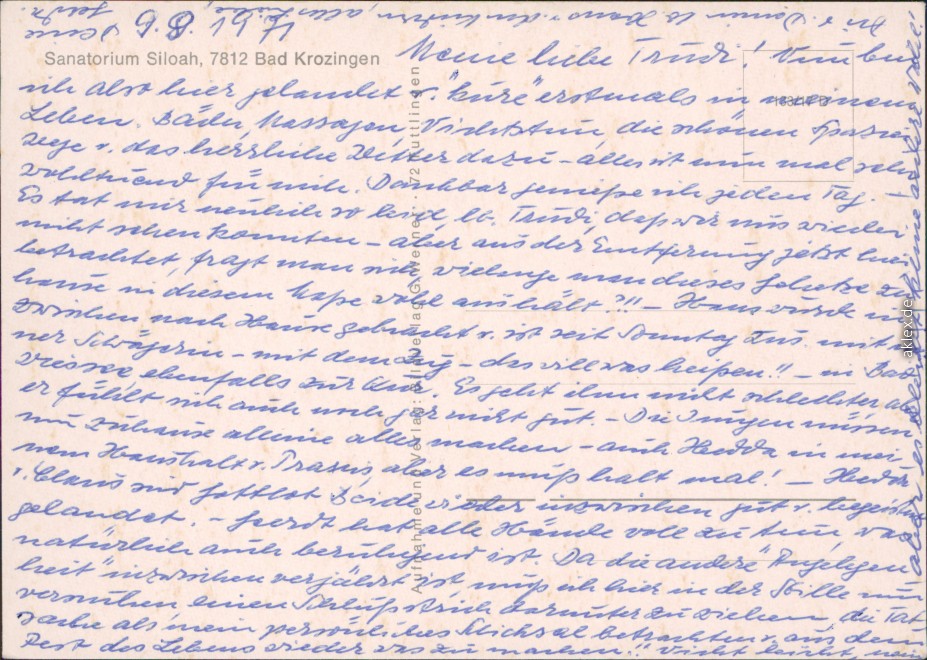 Sanatorium Siloah, 7812 Bad Krozingen
6.8.1971
Meine liebe Trudi! Nun bin
ich also hier gelandet v. "Kure" erstmals in meinem
Leben. Bäder, Massagen, Nichtstun, die schönen Spazier
wege u. das herrliche Wetter dazu - alles ist nun mal sehr
wohltuend für mich. Dankbar genieße ich jeden Tag. -
Es tat mir neulich so leid, lb. Trudi, daß wir uns wieder
nicht sehen konnten - aber aus der Entfernung jetzt hier
betrachtet, fragt man sich wielange man dieses Gehetze zu
hause in diesem Maße wohl aushält?!! - Hans wurde in
zwischen nach Hause gebracht u. ist seit Sonntag zus. mit mei
ner Schwägerin - mit dem Zug - das will was heißen!! - in Bad
Wiessee ebenfalls zur Kur. Es geht ihm nicht schlechter aber
er fühlt sich auch noch gar nicht gut. - Die Jungen müssen
nun zuhause alleine alles machen - auch Hedda in mei
nem Haushalt u. Praxis, aber es muß halt mal! - Hedda
u. Claus sind gottlob beide wieder inzwischen gut u.
gelandet. - Gerdt hat alle Hände voll zu tun, was
natürlich auch beruhigend ist. Da die andere "Angelegen
heit" inzwischen verjährt ist, muß ich hier in der Stille nun
versuchen einen Schlußstrich darunter zu ziehen, die Tat
sache als mein persönliches Schicksal betrachten u. aus dem
Rest des Lebens wieder was zu machen!! Nicht leicht, wenn
Aufnahme und Verlag: Bild Verlag G. Werner · 72 Tuttlingen
aklex.de